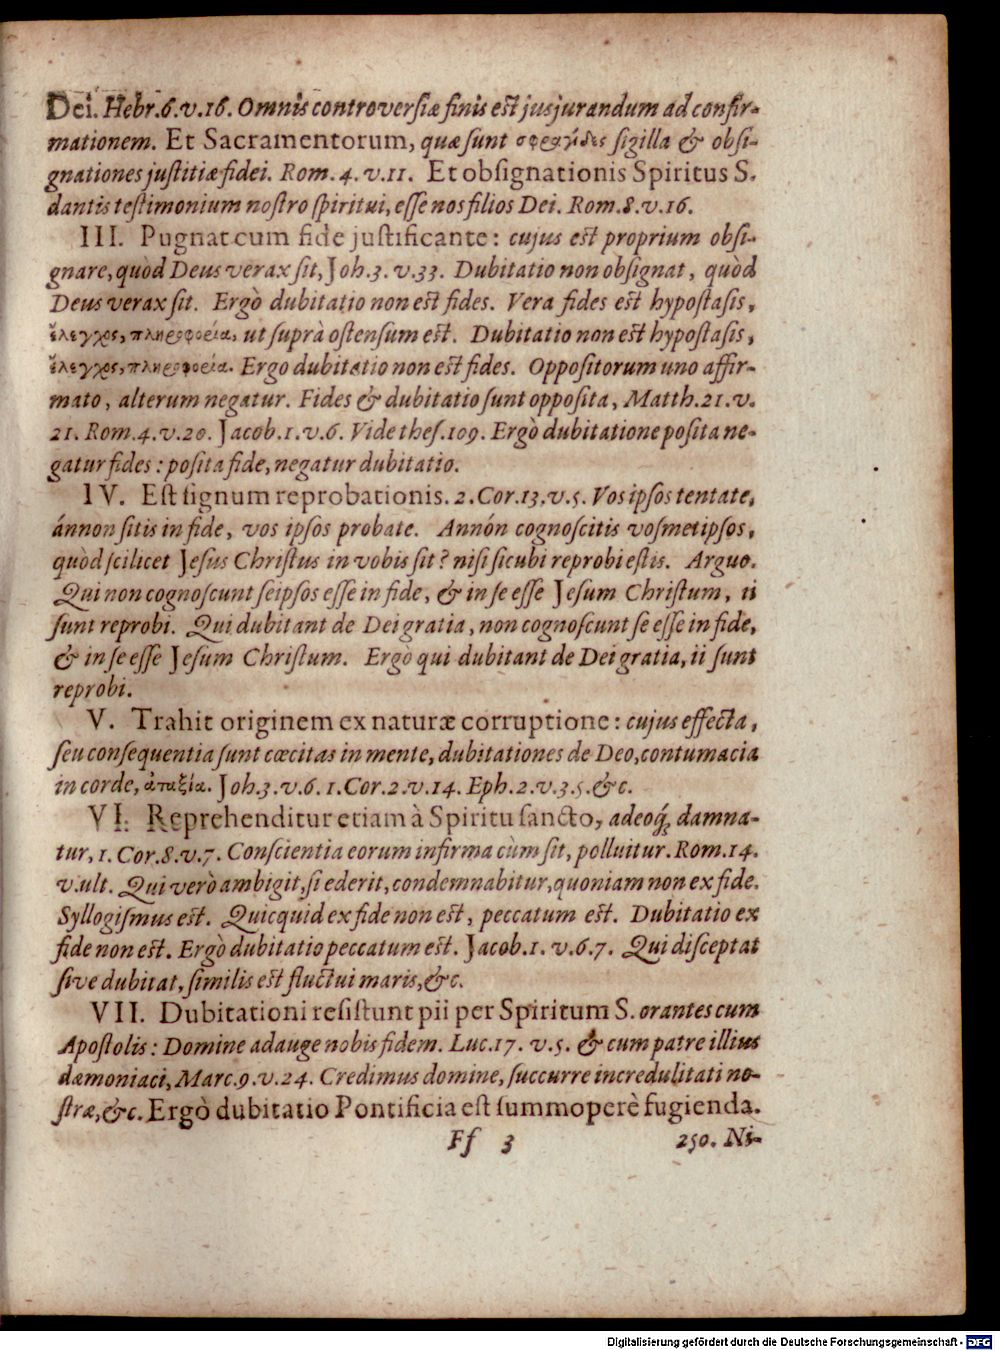 Dei. Hebr.6.v.16. Omnis controversiæ finis est jusjurandum ad confir-
mationem. Et Sacramentorum, quæ sunt σφραγῖδες sigilla & obsi-
gnationes justitiæ fidei. Rom. 4. v.11. Et obsignationis Spiritus S.
dantis testimonium nostro spiritui, esse nos filios Dei. Rom.8.v.16.
III. Pugnat cum fide justificante: cujus est proprium obsi-
gnare, quòd Deus verax sit, Joh.3. v.33. Dubitatio non obsignat, quòd
Deus verax sit. Ergò dubitatio non est fides. Vera fides est hypostasis,
ἔλεγχος, πληροφορία, ut suprà ostensum est. Dubitatio non est hypostasis,
ἔλεγχος, πληροφορία. Ergo dubitatio non est fides. Oppositorum uno affir-
mato, alterum negatur. Fides & dubitatio sunt opposita, Matth.21.v.
21. Rom.4.v.20. Jacob.1.v.6. Vide thes.109. Ergò dubitatione posita ne-
gatur fides: posita fide, negatur dubitatio.
IV. Est signum reprobationis. 2.Cor.13.v.5. Vos ipsos tentate,
ánnon sitis in fide, vos ipsos probate. Annón cognoscitis vosmetipsos,
quòd scilicet Jesus Christus in vobis sit? nisi sicubi reprobi estis. Arguo.
Qui non cognoscunt seipsos esse in fide, & in se esse Jesum Christum, ii
sunt reprobi. Qui dubitant de Dei gratia, non cognoscunt se esse in fide,
& in se esse Jesum Christum. Ergò qui dubitant de Dei gratia, ii sunt
reprobi.
V. Trahit originem ex naturæ corruptione: cujus effecta,
seu consequentia sunt cœcitas in mente, dubitationes de Deo, contumacia
in corde, ἀταξία. Joh.3.v.6. 1.Cor.2.v.14. Eph.2.v.3.5.&c.
VI. Reprehenditur etiam à Spiritu sancto, adeoq́; damna-
tur, 1. Cor.8.v.7. Conscientia eorum infirma cùm sit, polluitur. Rom.14.
v.ult. Qui verò ambigit, si ederit, condemnabitur, quoniam non ex fide.
Syllogismus est. Quicquid ex fide non est, peccatum est. Dubitatio ex
fide non est. Ergò dubitatio peccatum est. Jacob.1. v.6.7. Qui disceptat
sive dubitat, similis est fluctui maris, &c.
VII. Dubitationi resistunt pii per Spiritum S. orantes cum
Apostolis: Domine adauge nobis fidem. Luc.17. v.5. & cum patre illius
dæmoniaci, Marc.9.v.24. Credimus domine, succurre incredulitati no-
stræ, &c. Ergò dubitatio Pontificia est summoperè fugienda.
Ff 3 250. Ni-
Digitalisierung gefördert durch die Deutsche Forschungsgemeinschaft - DFG